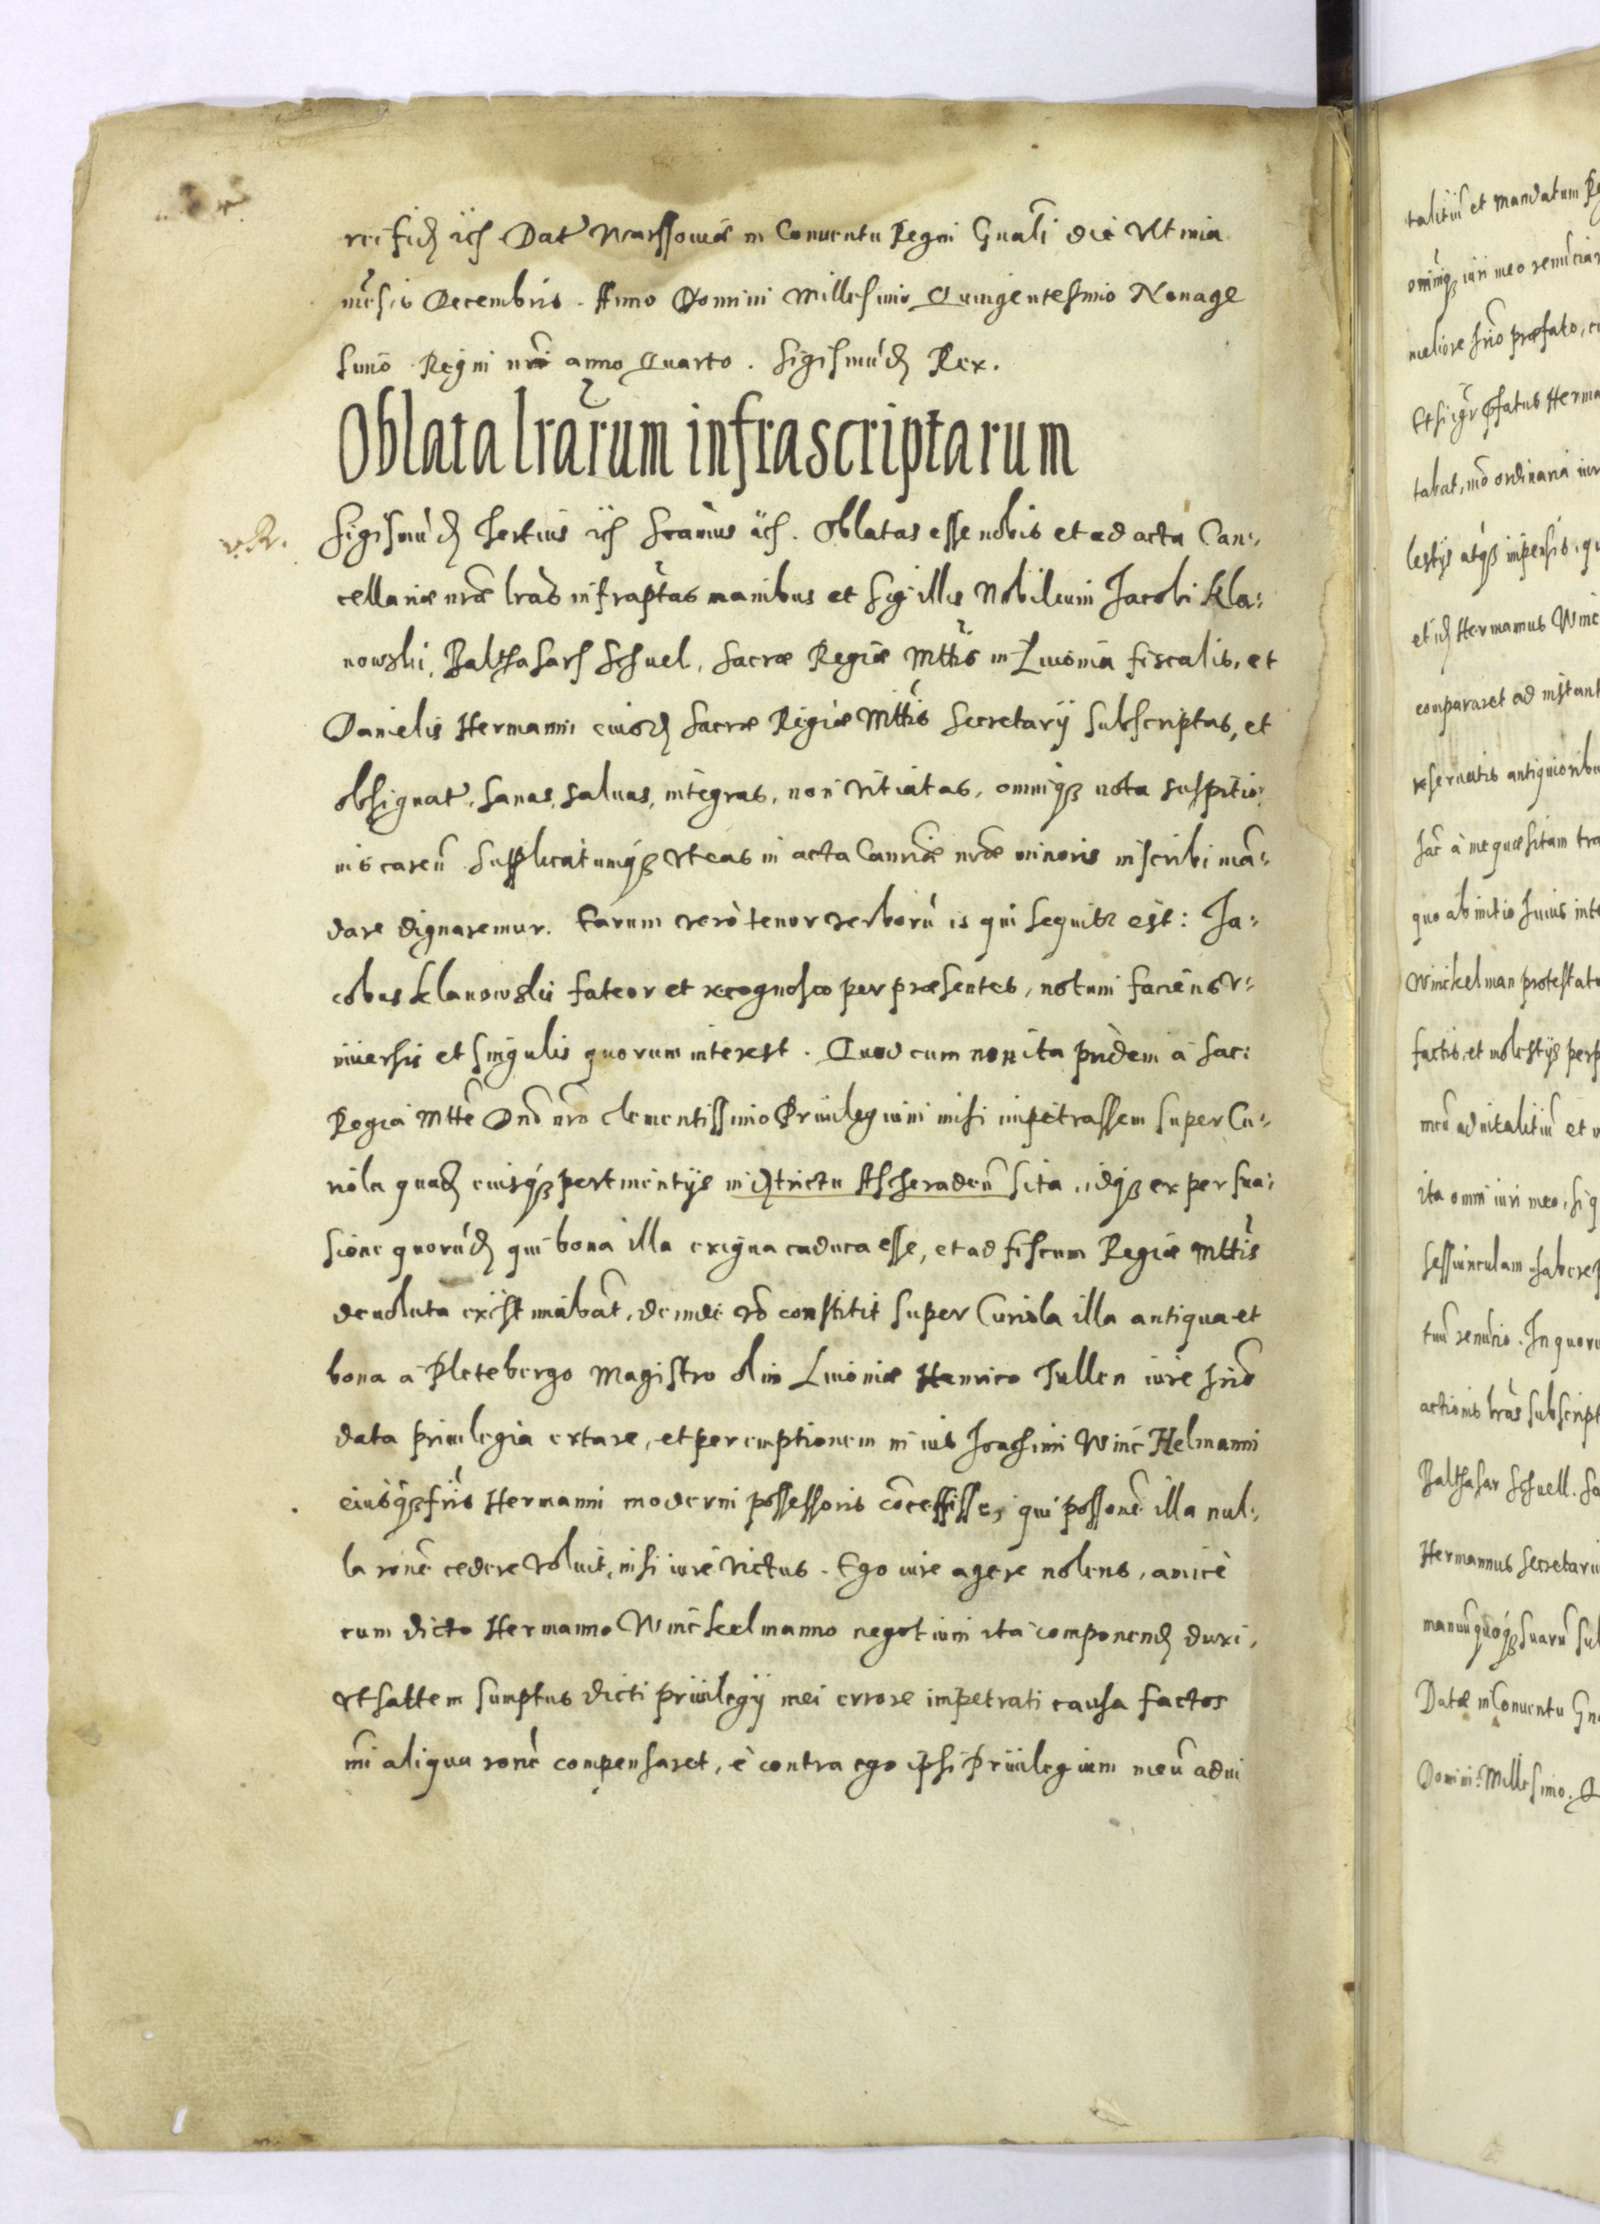 rei fid ich Dat Warssoviae in Conventu Regni Gnali die Ultima
mesis Decembris. Anno Domini Millesimo Quingentesimo Nonage
simo Regni nri anno Quarto. Sigismud Rex.
Oblata lrarum infrascriptarum
v. R.
Sigismud Tertius ich Scimus ich. Oblatas esse nobis et ad acta Can:
cellariae nrae lras infraptas manibus et sigillis Nobilium Jacobi Kla:
nowski, Balthasars Schuel, Sacrae Regiae Mttis in Livonia fiscalis, et
Danielis Hermanni eiusd Sacrae Regiae Mttis Secretarij subscriptas, et
obsignat, sanas, salvas, integras, non vitiatas, omniq nota suspitio:
nis caren supplicatumq ut eas in acta Canriae nrae minoris inscribi ma:
dare dignaremur. Earum verò tenor verborù is qui sequitr est: Ja:
cobus Klanowskii fateor et recognosco per praesentes, notum faciens v:
niversis et singulis quorum interest. Quod cum non ita pridem à Sac:
Regia Mtte Dno nro clementissimo Privilegium mihi impetrassem super Cu:
riola quad eiusq pertinentijs in dtrictu Ascheraden sita, idq ex persua:
sione quorud qui bona illa exigua caduca esse, et ad fiscum Regiae Mttis
devoluta existimabat, deinde vo constitit super Curiola illa antiqua et
bona à Pletebergo Magistro olim Livoniae Henrico Tullen iure hrio
data privilegia extare, et per emptionem in ius Joachimi Winc Helmanni
eiusq fris Hermanni moderni possessoris cocessisse, qui possone illa nul:
la rone cedere voluit, nisi iure victus. Ego iure agere nolens, amicè
cum dicto Hermanno Winckelmanno negotium ita componend duxi,
ut saltem sumptus dicti privilegij mei errore impetrati causa factos
mi aliqua rone compensaret, è contra ego ipsi Privilegium meu ad vi
talitiu et mandatum
omniq iuri meo
meliore hrio praefato,
Et si igr pfatus Herma
tabat, mo ordinaria
lestijs atq impensis, qu
et id Hermannus Winc
compararet ad instant
reservatis antiquioribu
hac à me quaesitam tra
quo ab initio huius inte
Winckelman protestat
factis, et molestijs perp
meu ad vitalitiu et
ita omni iuri meo, si q
sessiunculam habere
tuu renutio. In quoru
actionis lras subscript
Balthasar Schuell. Sa
Hermannus Secretariu
manuu quoq suaru sub
Datae in Conventu Gn
Domini: Millesimo. Q